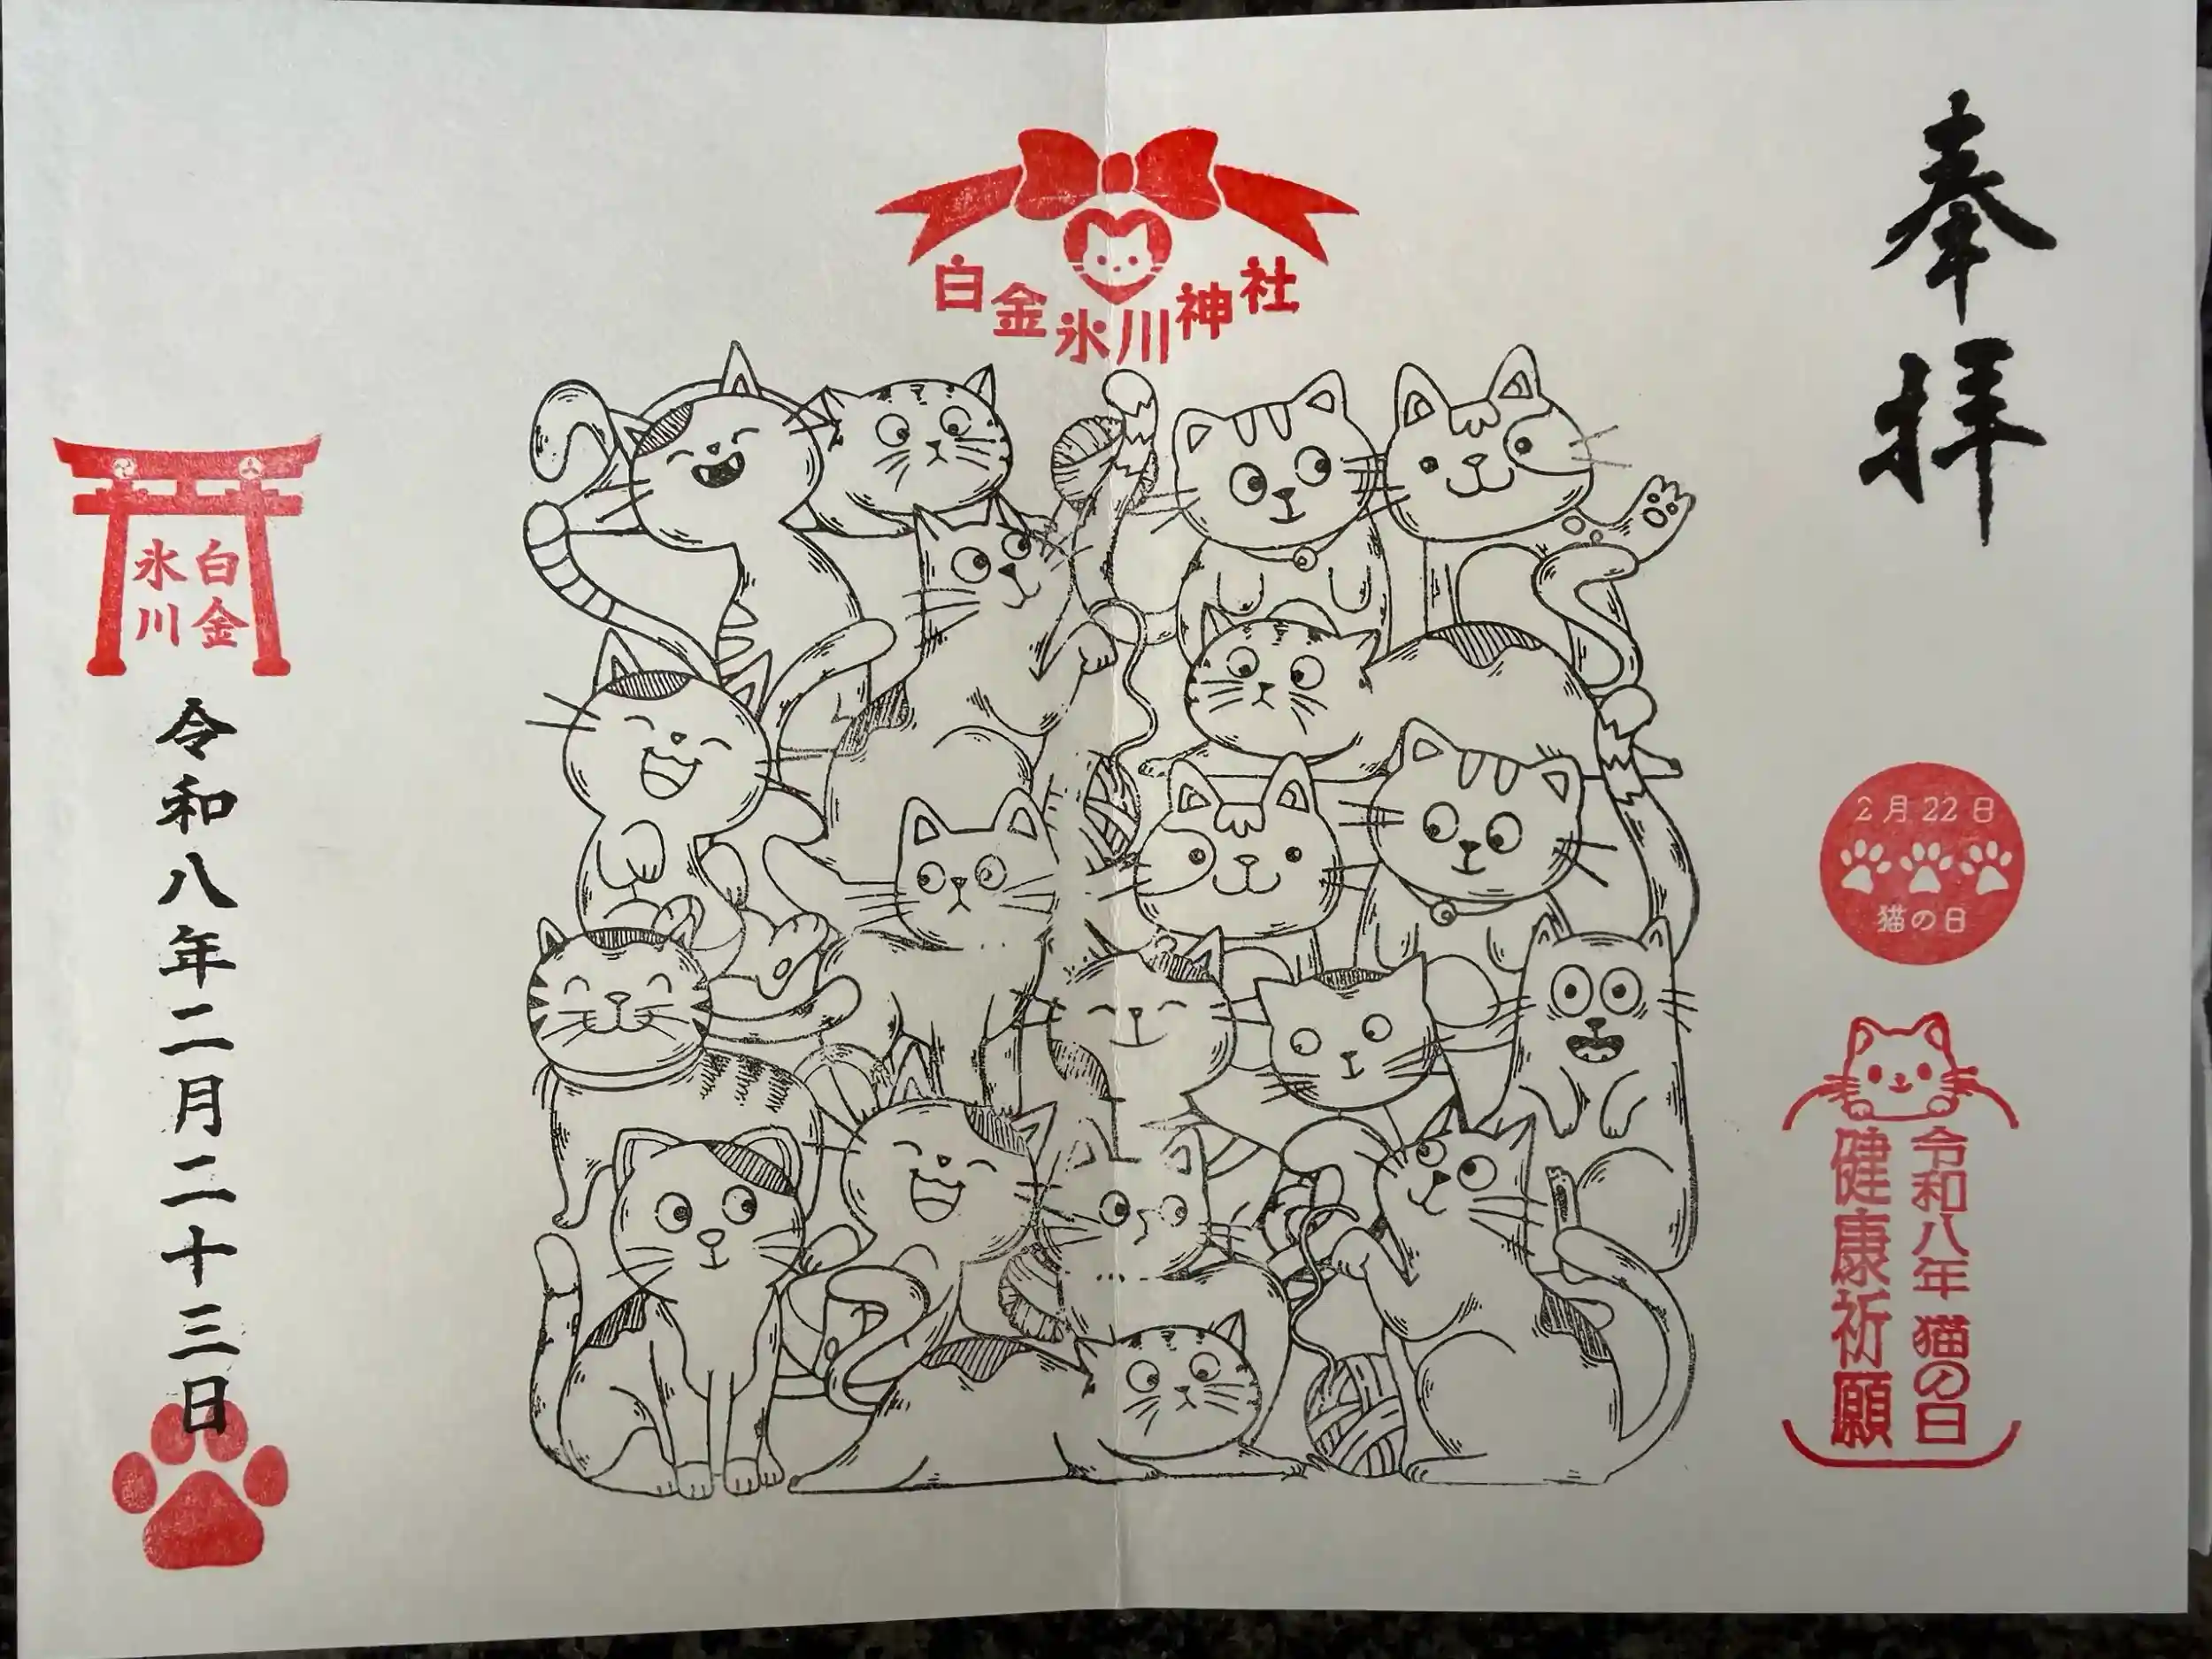 奉拝
2月22日
猫の日
令和八年 猫の日
健康祈願
白金氷川神社
白金
氷川
令和八年二月二十三日